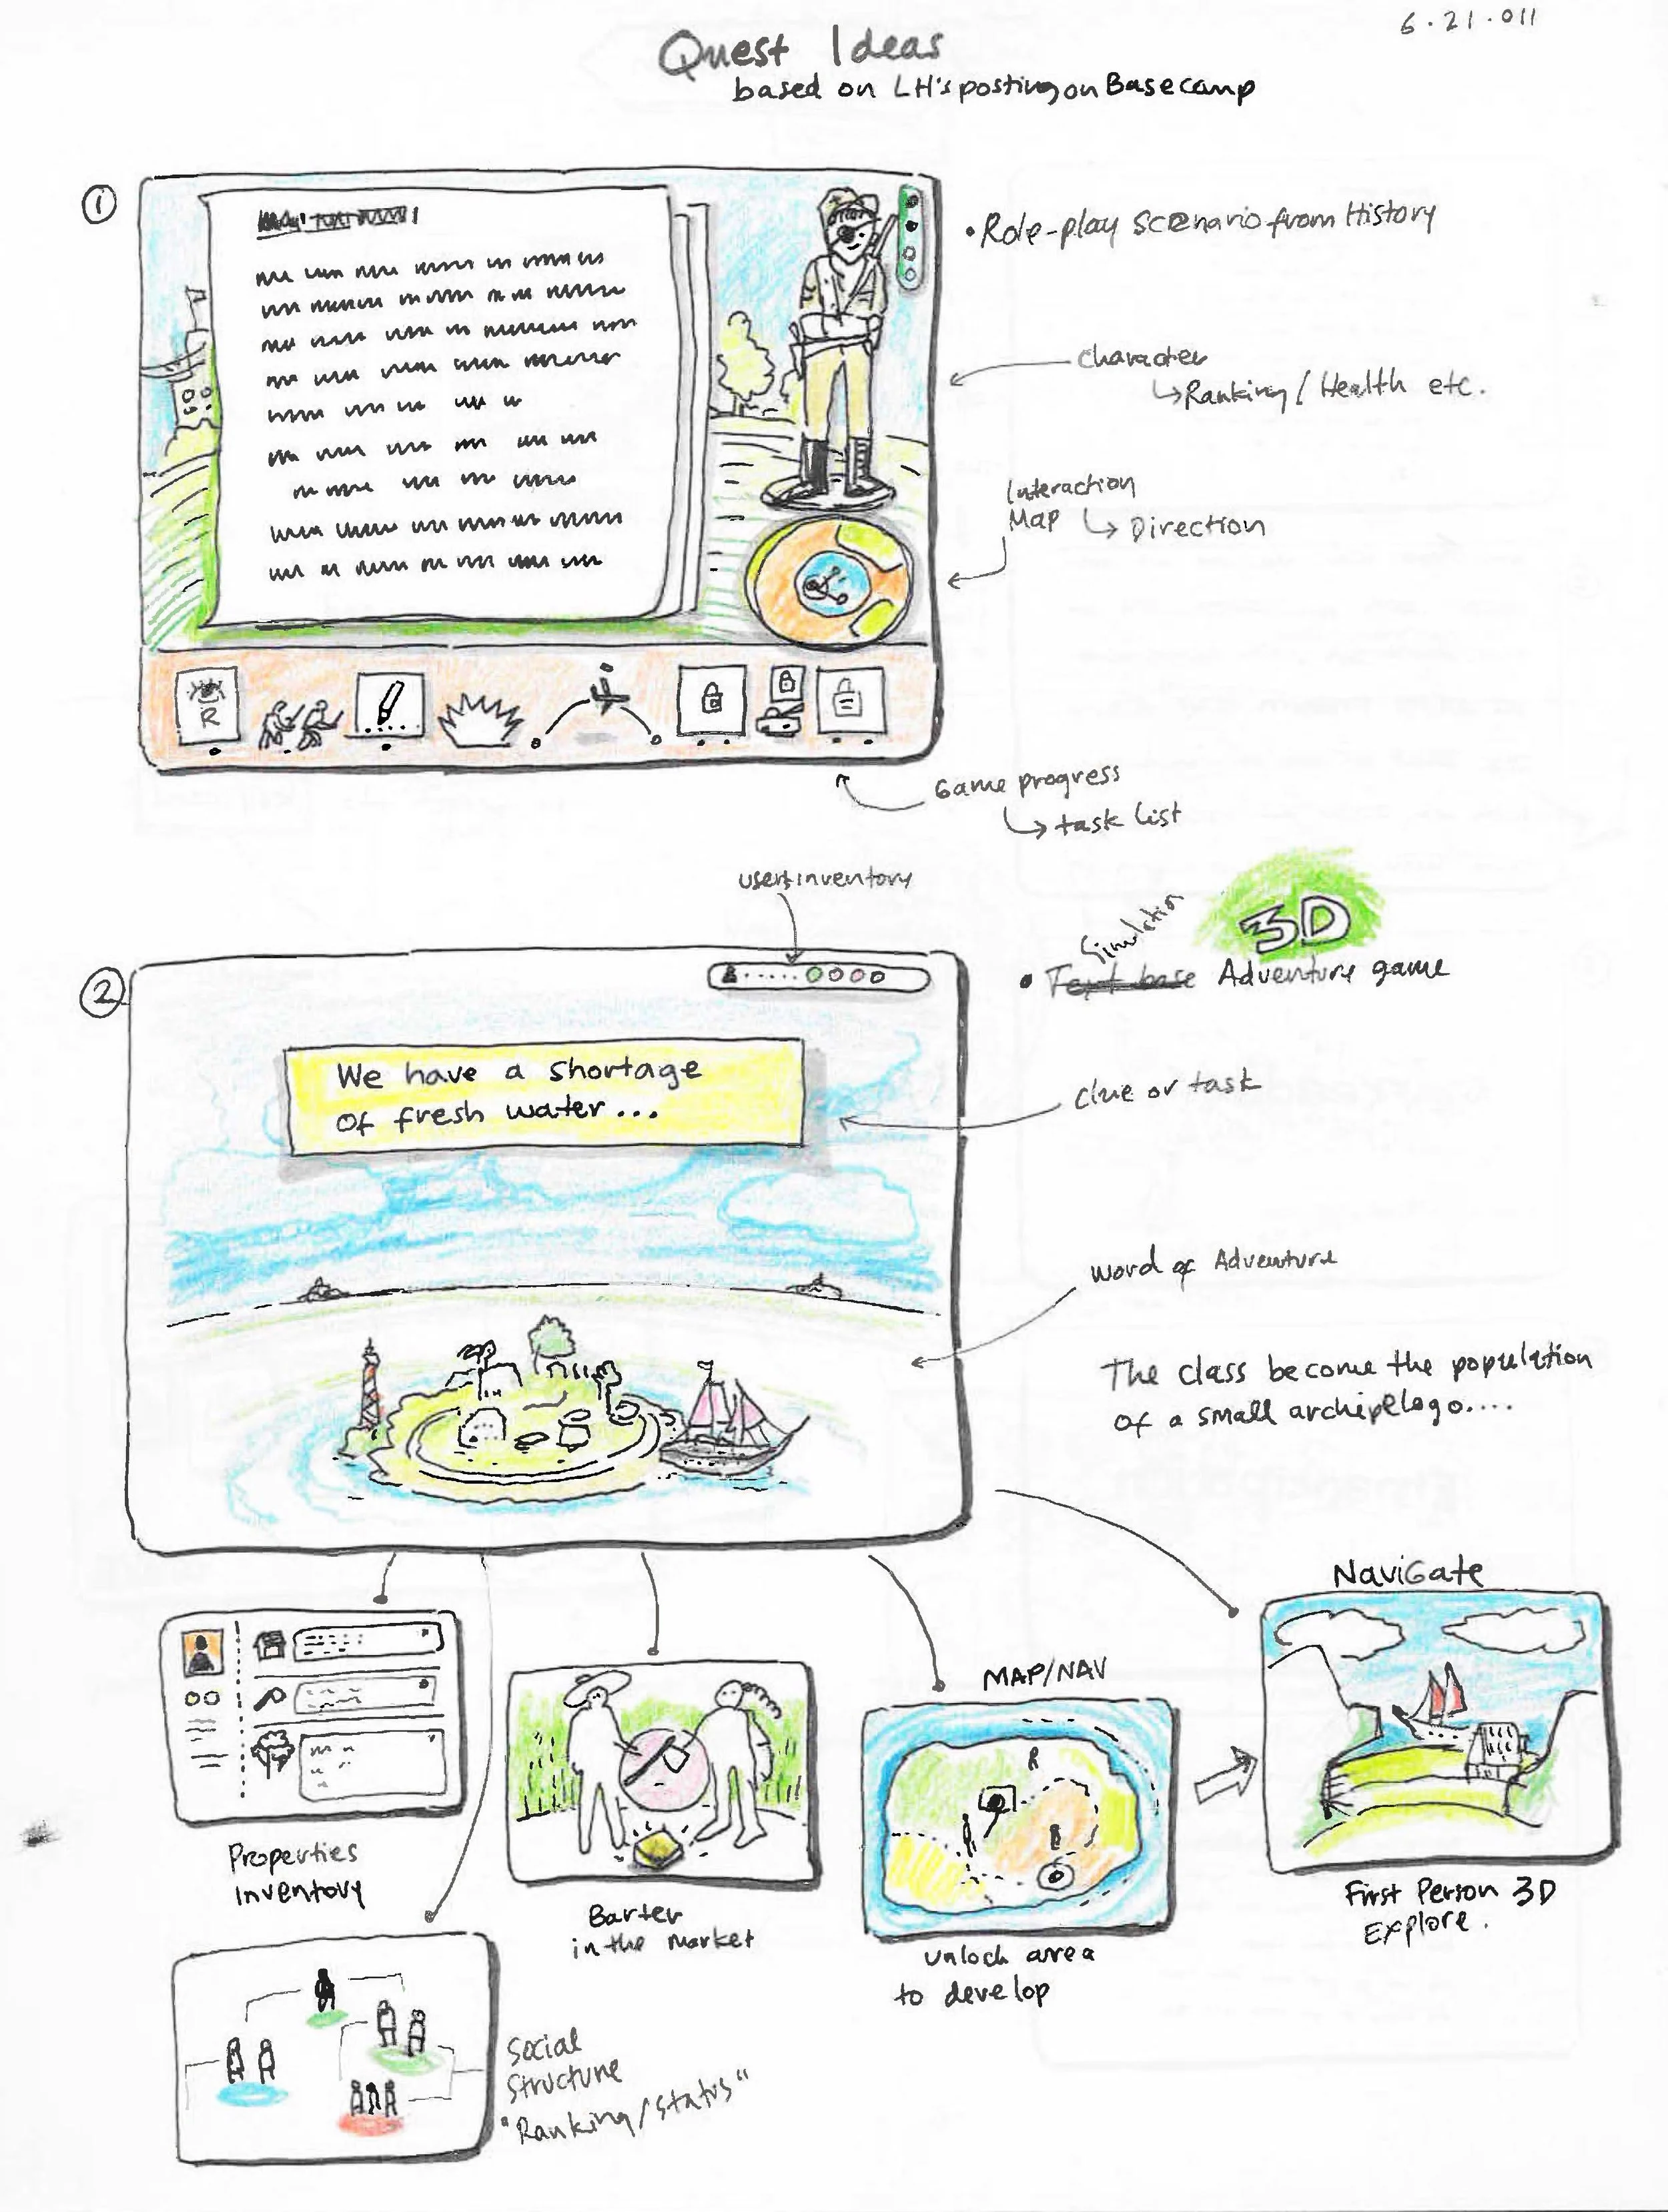 6.21.011
Quest Ideas
based on LH's posting on Basecamp
1
• Role-play scenario from History
character
Ranking / Health etc.
Interaction
Map
Direction
R
Game progress
task list
users inventory
3D
Simulation
• Text base Adventure game
2
We have a shortage
of fresh water...
clue or task
word of Adventure
The class become the population
of a small archipelago....
Navigate
MAP/NAV
R
B
Properties
Inventory
Barter
in the market
unlock area
to develop
First Person 3D
Explore.
Social
Structure
"Ranking/Status"